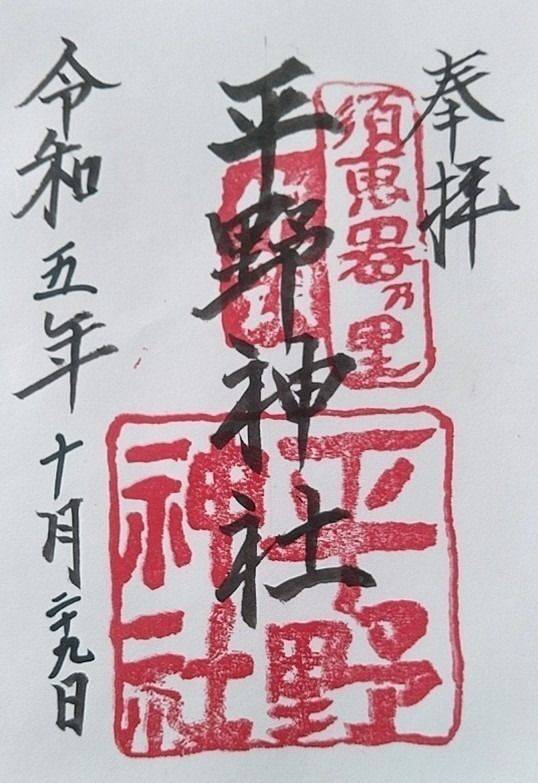 奉拝
須恵器乃里
平野神社
平野
神社
令和五年十月二十九日